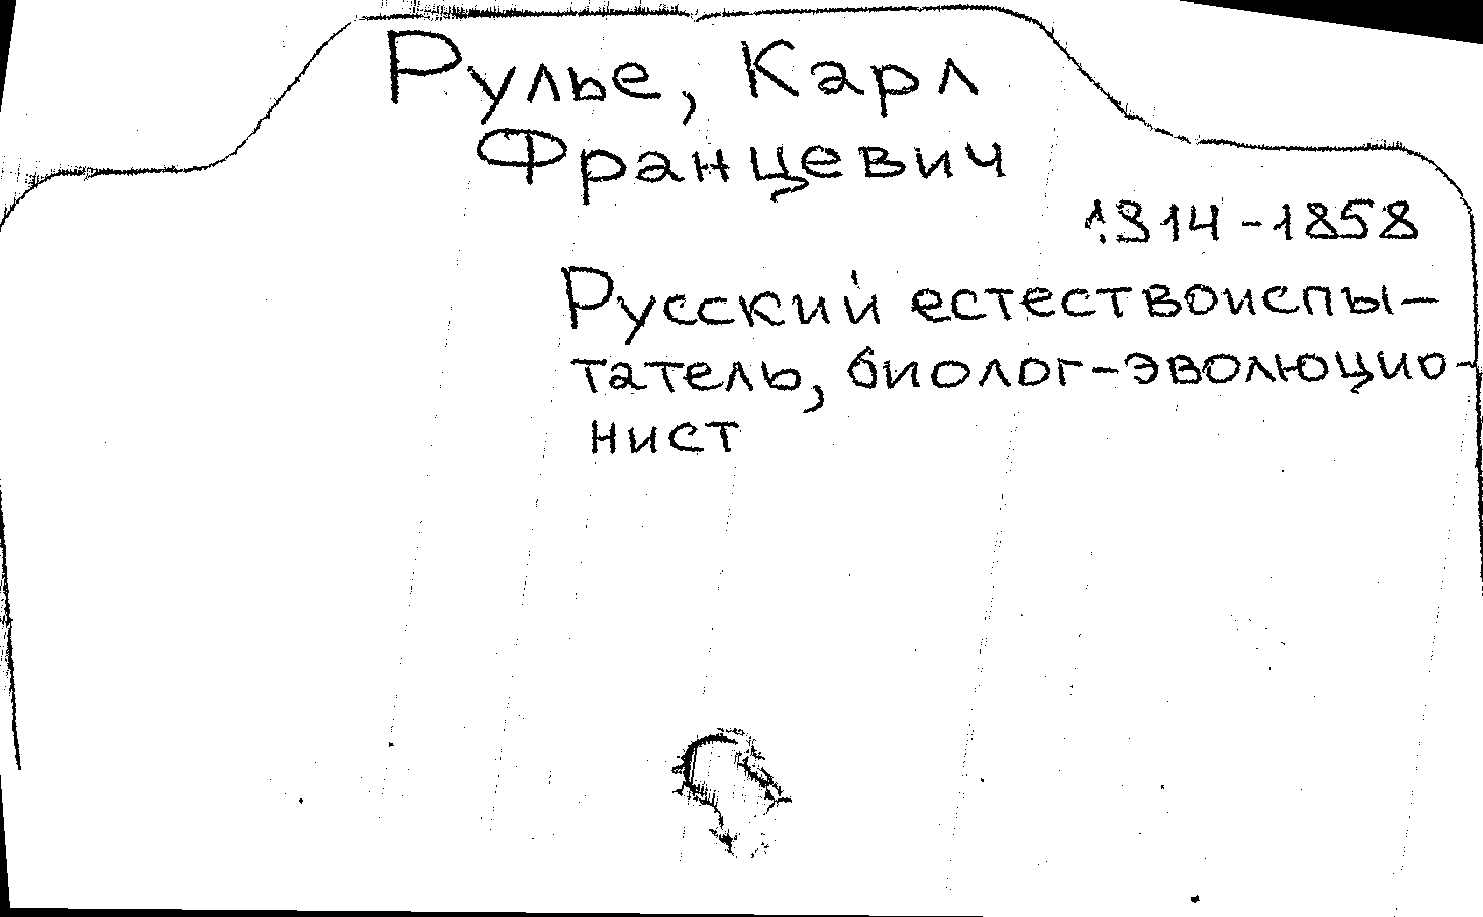 Рулье, Карл
Францевич
1814-1858
Русский естествоиспы-
татель, биолог-эволюцио-
нист